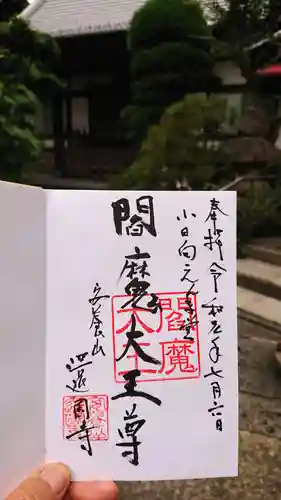 奉拝 令和元年七月六日
小日向えんま堂
閻魔大王尊
閻魔大王
安養山
還國寺